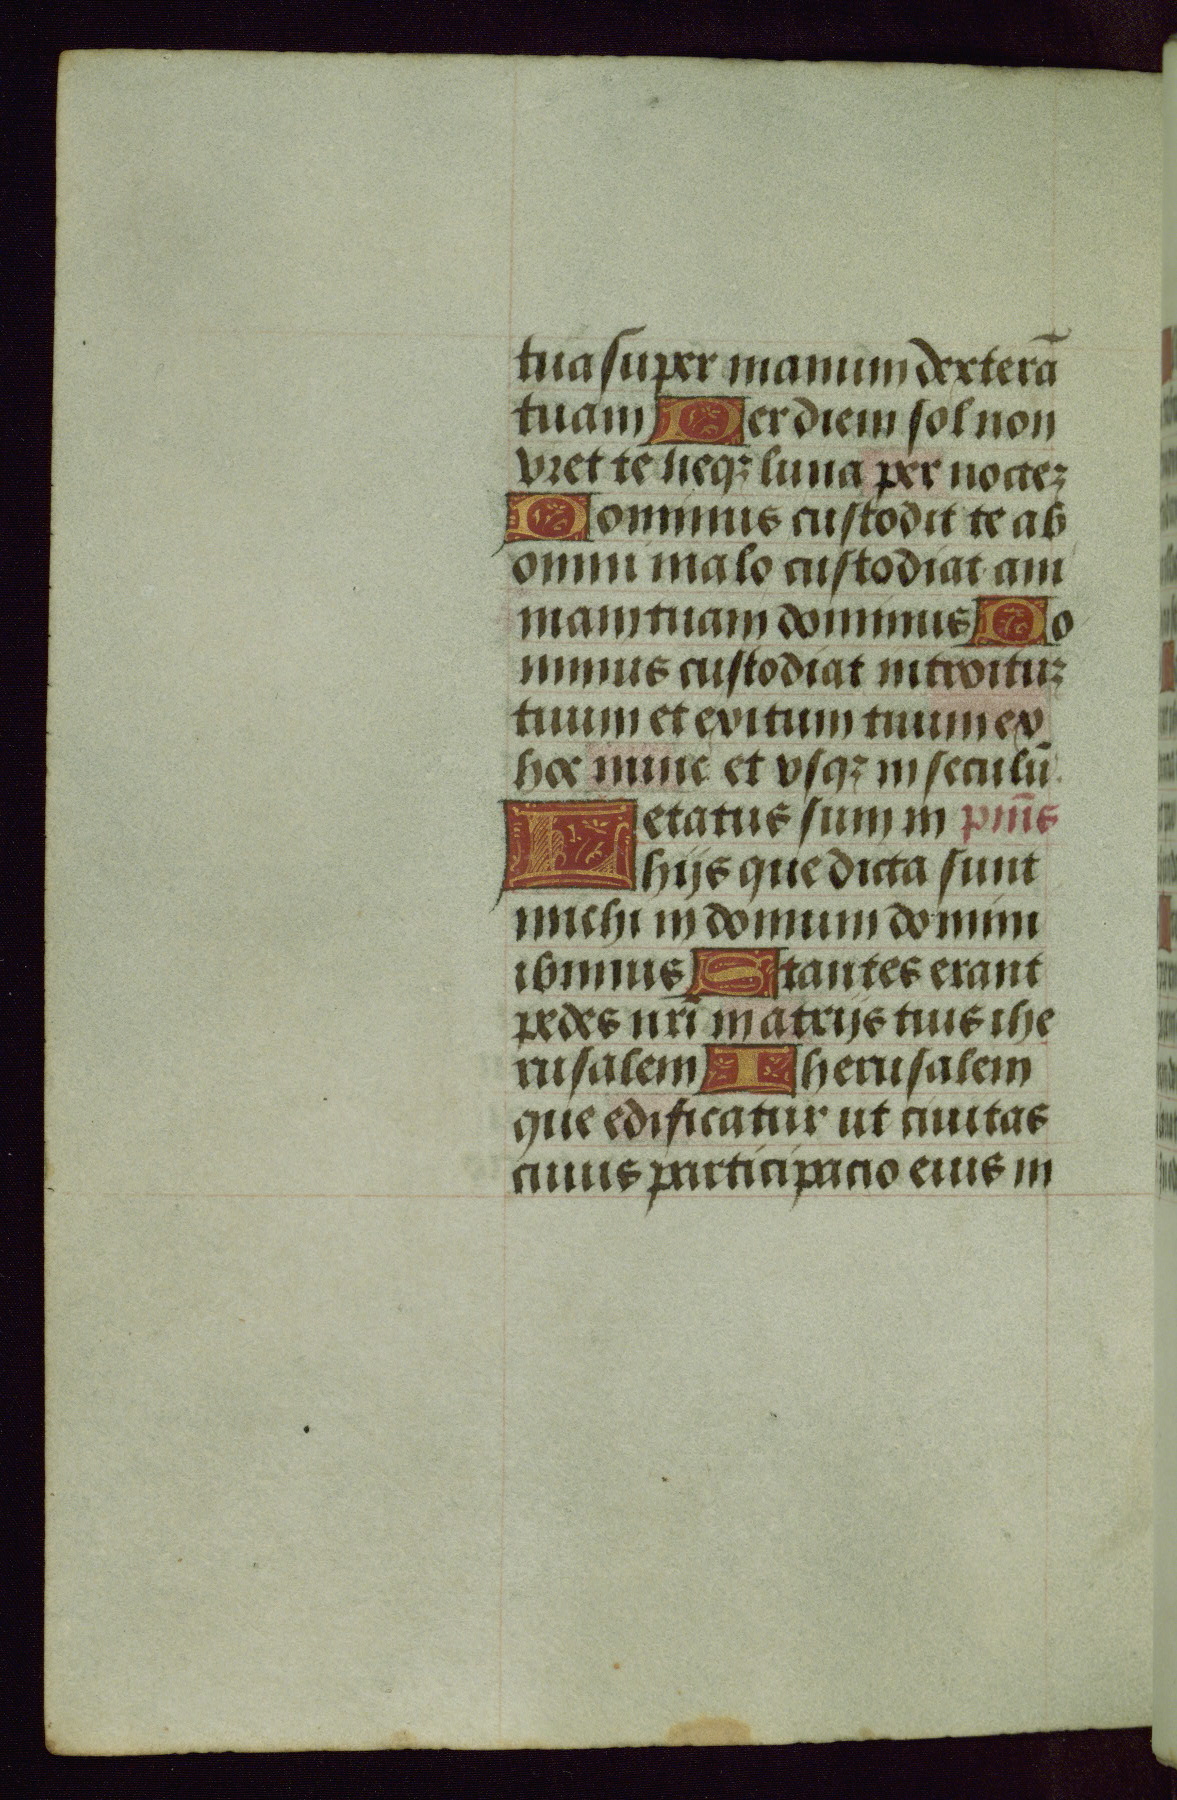 tua super manum dexterā
tuam Per diem sol non
vret te neqꝫ luna per nocteꝫ
Dominus custodit te ab
omni malo custodiat ani
mam tuam dominus Do
minus custodiat introituꝫ
tuum et exitum tuum ex
hoc nunc et vsqꝫ in seculū
Letatus sum in pm̄s
hijs que dicta sunt
michi in domum domini
ibimus Stantes erant
pedes nr̄i in atrijs tuis ihe
rusalem Iherusalem
que edificatur ut ciuitas
cuius participacio eius in